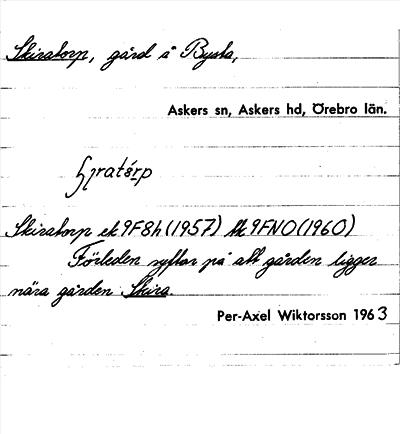 Skiratorp, gård å Bysta,
Askers sn, Askers hd, Örebro län.
Skiratorp ek 9F8h (1957) tk 9FNO (1960)
Förleden syftar på att gården ligger
nära gården Skira.
Per-Axel Wiktorsson 1963